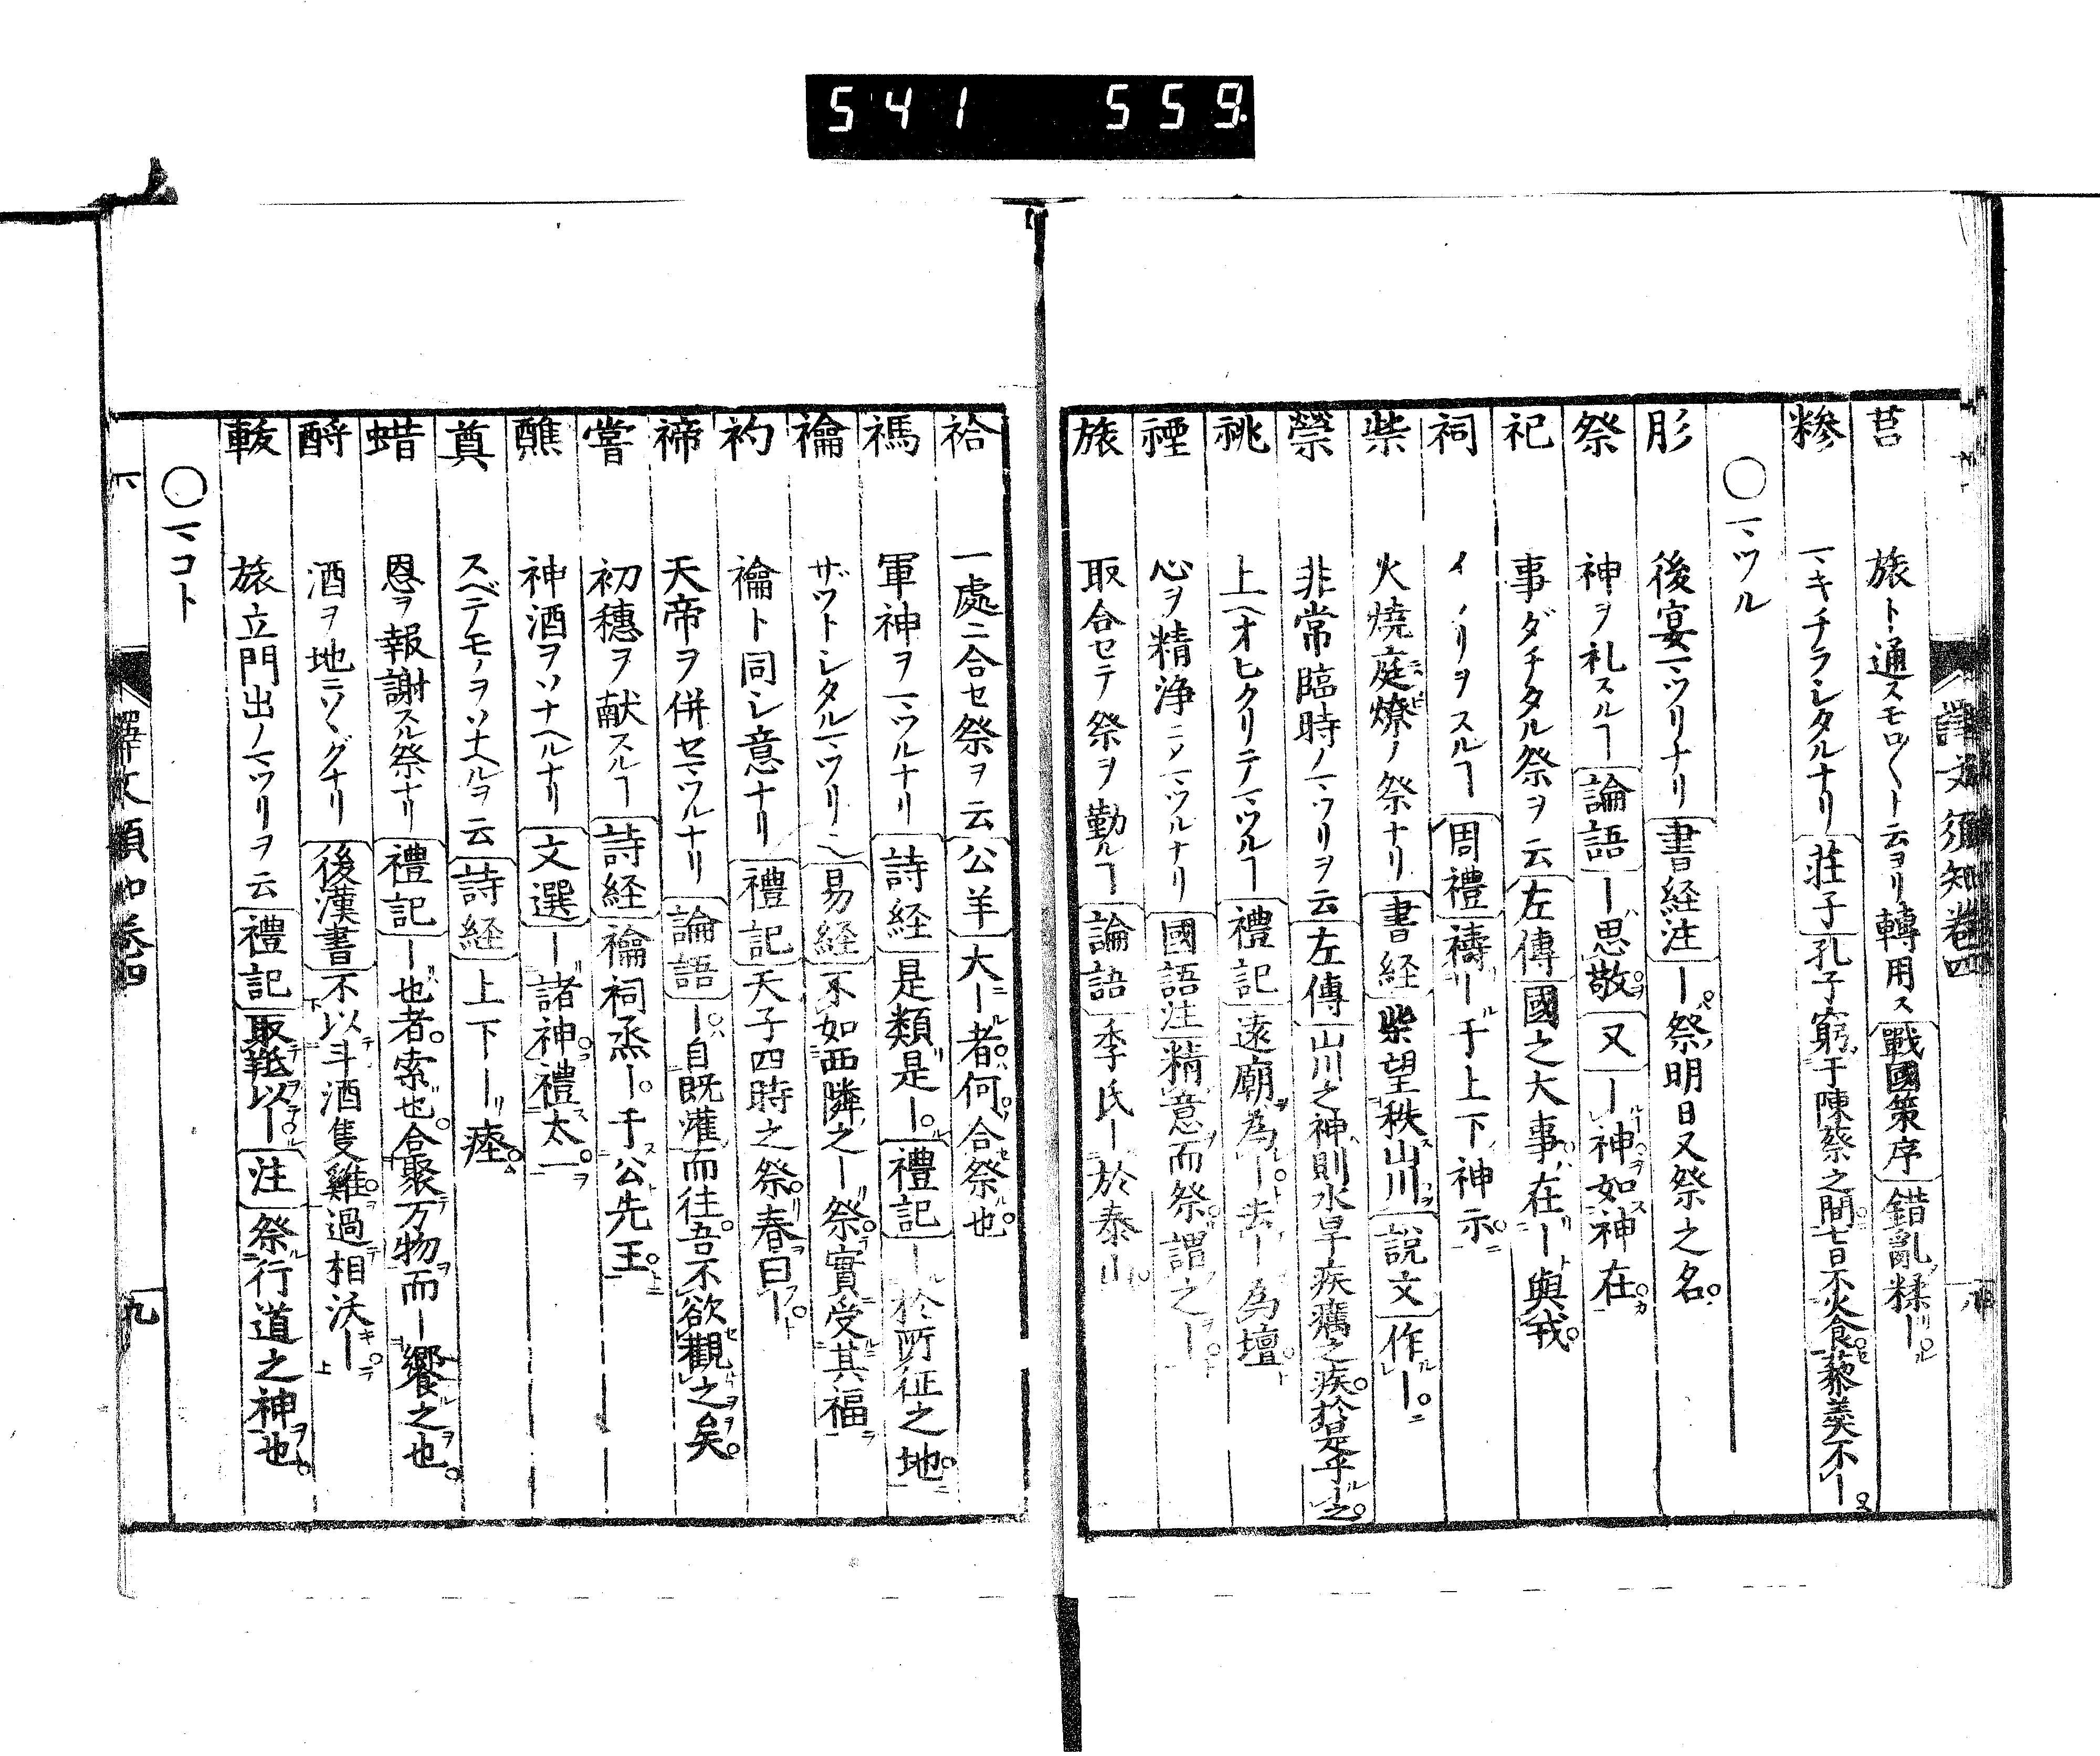 541 559
譯文須知卷四
莒 旅ト通スモロ〱ト云ヨリ轉用ス 戰國策序 錯亂糅ー
糝 マキチラシタルナリ 荘子 孔子窮于陳蔡之間七日不火食藜羹不ー
○マツル
肜 後宴マツリナリ 書経注 ー祭明日又祭之名
祭 神ヲ礼スルヿ 論語 ー思敬 又 ー神如神在
祀 事ダチタル祭ヲ云 左傳 國之大事在ー與戎
祠 イノリヲスルヿ 周禮 禱ー于上下神示
祡 火燒庭燎ノ祭ナリ 書経 柴望秩山川 説文 作ー
禜 非常臨時ノマツリヲ云 左傳 山川之神則水旱疾癘之疾於是乎ー之
祧 上ヘオヒクリテマツルヿ 禮記 遠廟為ー去ー為壇
禋 心ヲ精浄ニノマツルナリ 國語注 精意而祭謂之ー
旅 取合セテ祭ヲ勤ルヿ 論語 季氏ー於泰山
祫 一處ニ合セ祭ヲ云 公羊 大ー者何合祭也
禡 軍神ヲマツルナリ 詩経 是類是ー 禮記 ー於所征之地
禴 ザットシタルマツリ 易経 不如西隣之ー祭實受其福
礿 禴ト同シ意ナリ 禮記 天子四時之祭春曰ー
禘 天帝ヲ併セマツルナリ 論語 ー自既灌而往吾不欲觀之矣
嘗 初穗ヲ献スルヿ 詩経 禴祠烝ー于公先王
醮 神酒ヲソナヘルナリ 文選 ー諸神禮太一
奠 スベテモノヲソナヘルヲ云 詩経 上下ー瘞
蜡 恩ヲ報謝スル祭ナリ 禮記 ー也者索也合聚万物而ー饗之也
酹 酒ヲ地ニソヽグナリ 後漢書 不以斗酒隻雞過相沃ー
軷 旅立門出ノマツリヲ云 禮記 取羝以ー 注 祭行道之神也
○マコト
譯文須知卷四 九